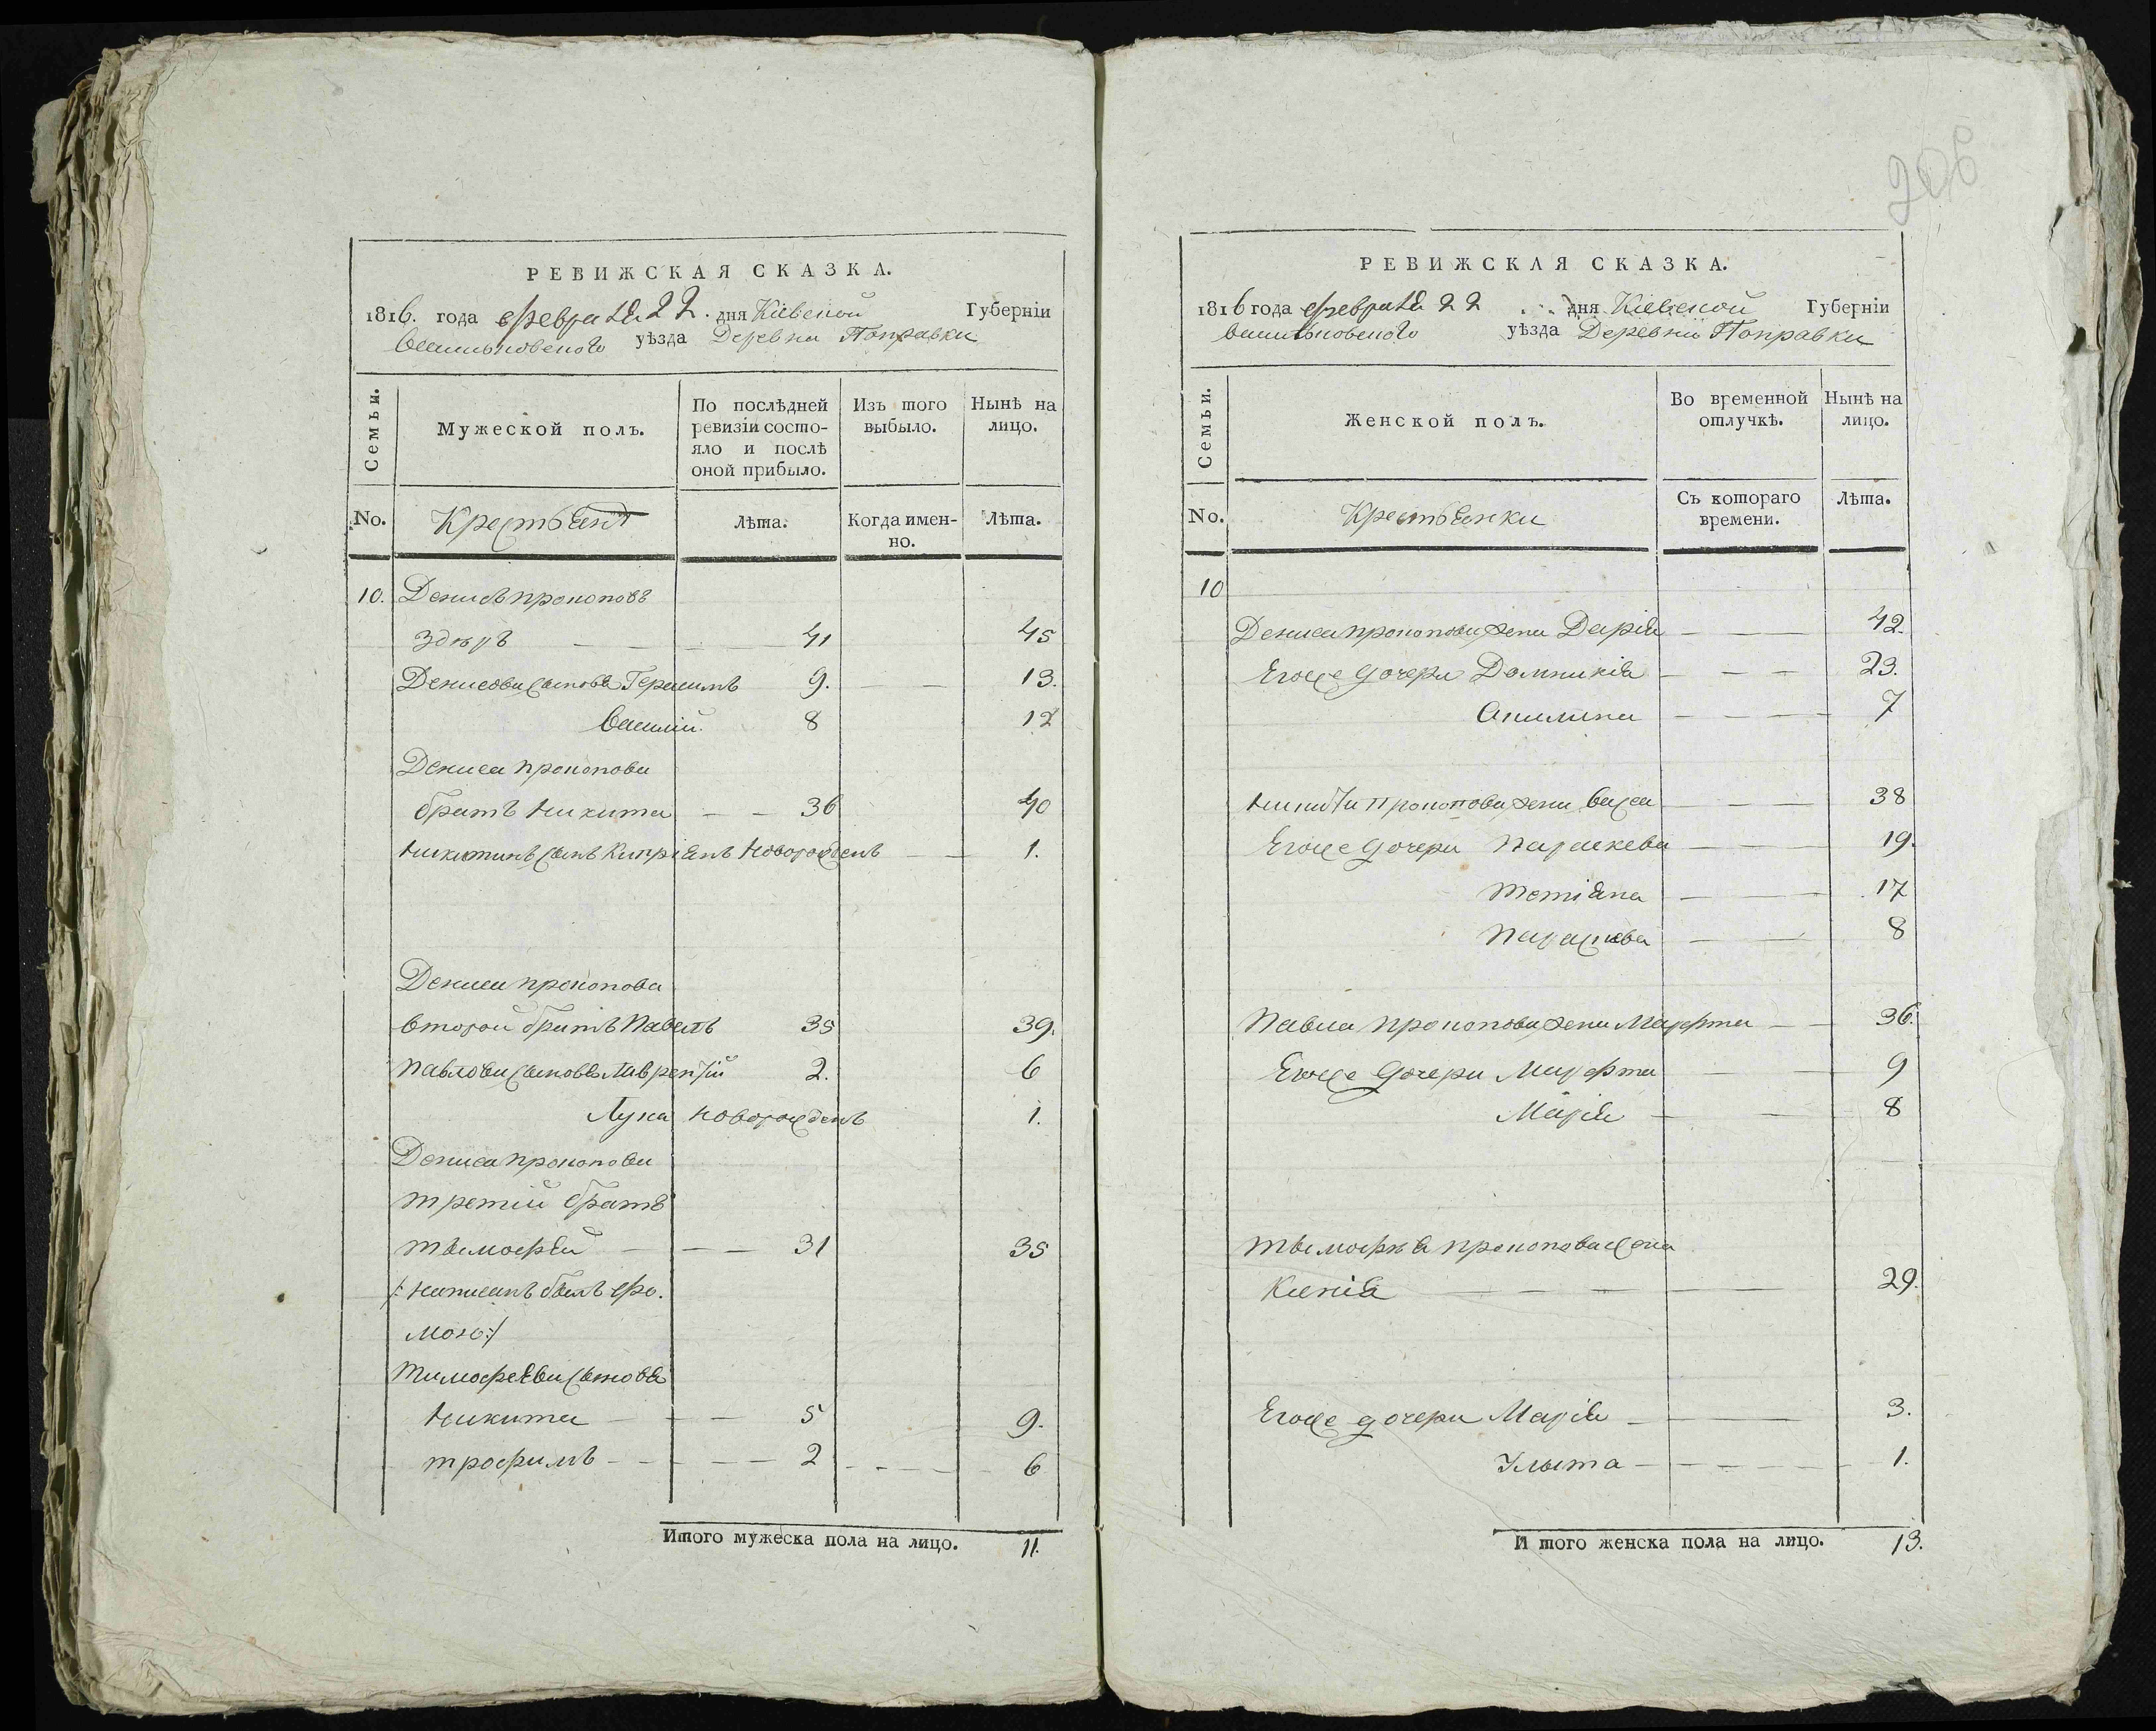 206
РЕВИЖСКАЯ СКАЗКА.
1816. года февраля 22. дня Кіевской Губерніи
Васильковского уѣзда Деревни Поправки
Семьи.
Мужеской полъ.
По послѣдней ревизіи состояло и послѣ оной прибыло.
Изъ того выбыло.
Нынѣ на лицо.
No.
Крестьянъ
Лѣта.
Когда именно.
Лѣта.
10. Денисъ прокоповъ
41 45
Денисови сыновя Герасимъ 9. 13.
Василій. 8 12
Дениса прокопова
братъ Никита 36 40
Никитинъ сынъ Кипріянъ Новорожденъ 1.
Дениса прокопова
второй братъ Павелъ 35 39.
Павлови сыновя Лаврентій 2. 6
Лука новорожденъ 1.
Дениса прокопова
третій братъ
тымофей 31 35
/: написанъ былъ фо.
мою:/
Тимофееви сыновя
Никита 5 9.
трофимъ 2 6
Итого мужеска пола на лицо. 11.
РЕВИЖСКАЯ СКАЗКА.
1816 года февраля 22 дня Кіевской Губерніи
Васильковского уѣзда Деревни Поправки
Семьи.
Женской полъ.
Во временной отлучкѣ.
Нынѣ на лицо.
No.
Крестьянки
Съ котораго времени.
Лѣта.
10
Дениса прокопова жена Дарія 42.
Егоже дочери Домникія 23.
Акилина 7
Никиты Прокопова жена Васса 38
Егоже дочери Параскева 19.
тетіяна 17
Параскева 8
Павла Прокопова жена Марфта 36.
Егоже дочери Марфта 9
Марія 8
тымофѣя прокопова жена
Ксенія 29.
Егоже дочери Марія 3.
Улыта 1.
Итого женска пола на лицо. 13.